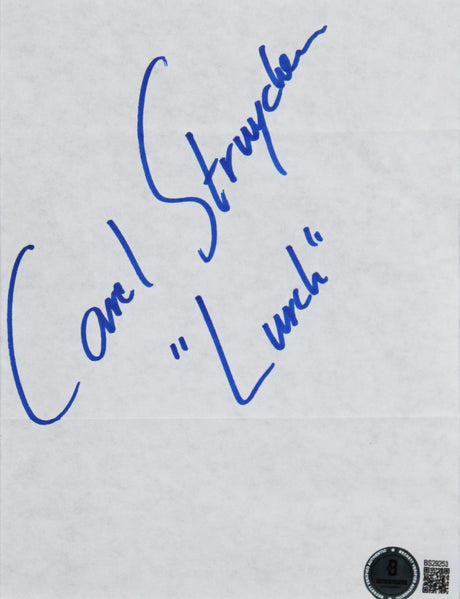 Carel Struycken
"Lurch"
BS29253